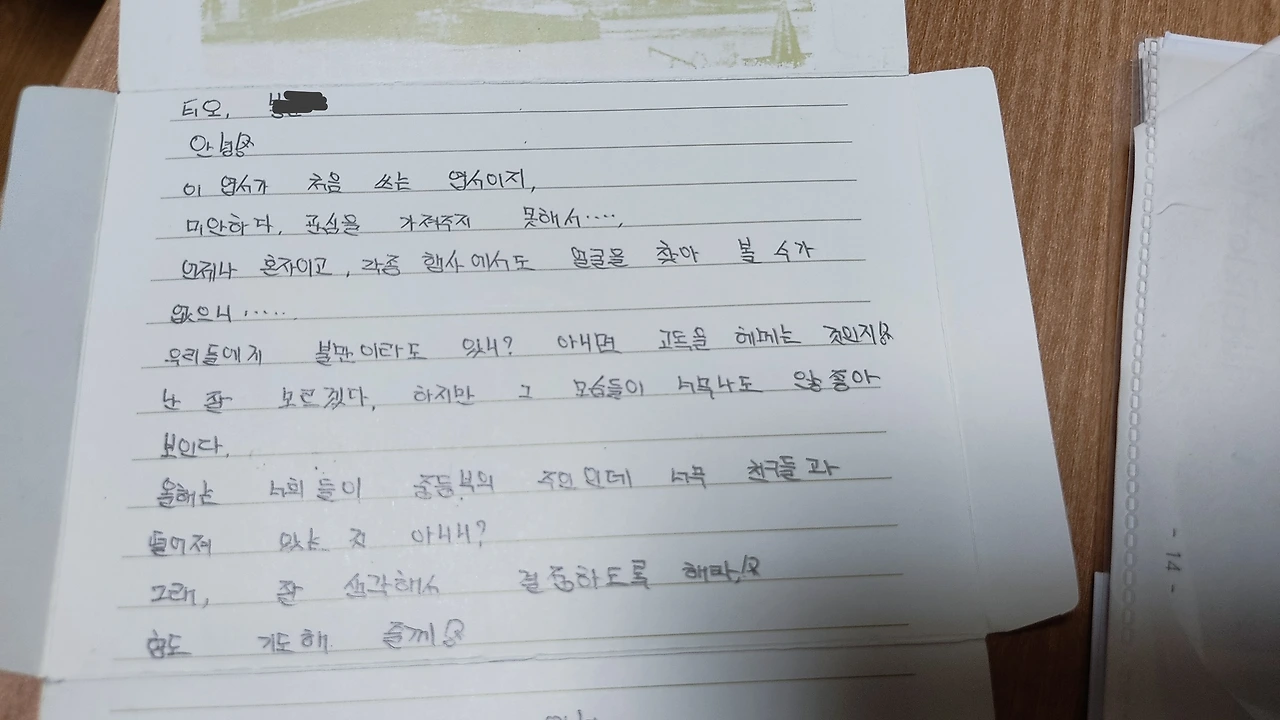 티오,
안녕!
이 엽서가 처음 쓰는 엽서이지,
미안하다, 관심을 가져주지 못해서····,
언제나 혼자이고, 각종 행사에서도 얼굴을 찾아 볼 수가
없으니······
우리들에게 불만이라도 있니? 아니면 고독을 헤메는 것인지!
난 잘 모르겠다, 하지만 그 모습들이 너무나도 안좋아
보인다,
올해는 너희들이 중등부의 주인인데 너무 친구들과
떨어져 있는 것 아니니?
그래, 잘 생각해서 결정하도록 해라,!
형도 기도해 줄께!
- 14 -